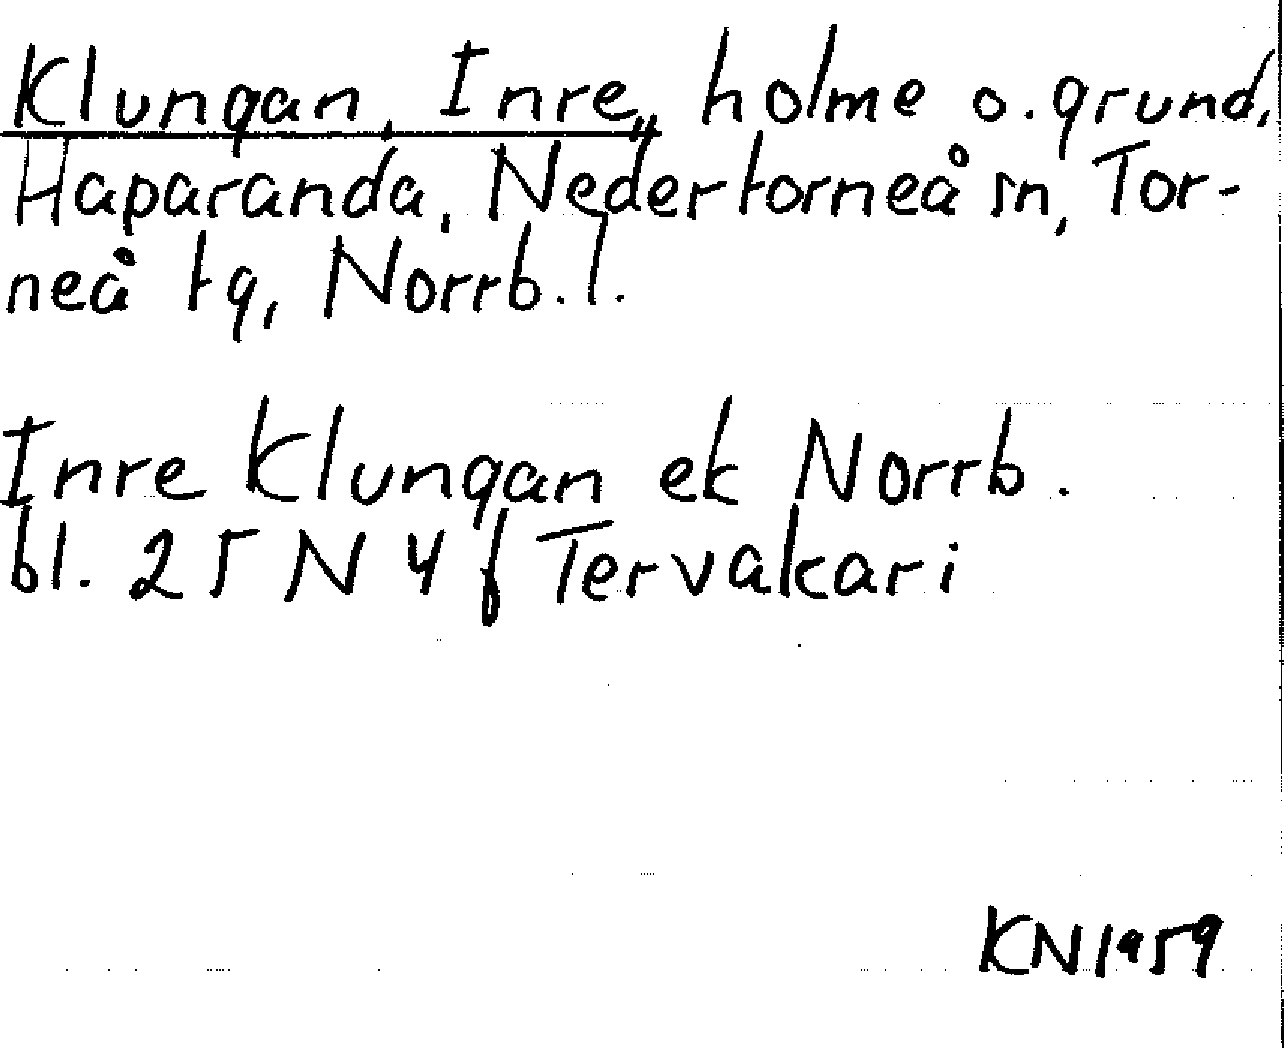 Klungan, Inre,, holme o. grund,
Haparanda, Nedertorneå sn, Tor-
neå tg, Norrb. l.
Inre Klungan ek Norrb.
bl. 25 N 4 f Tervakari
KN 1959